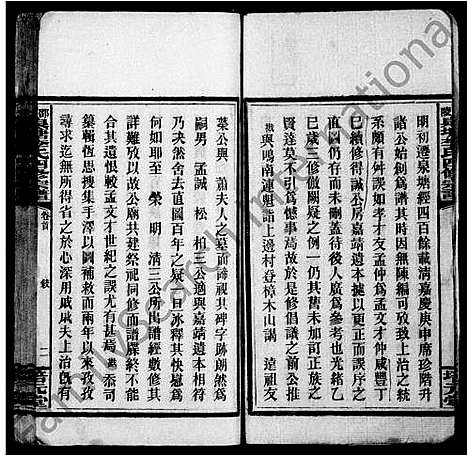 明初遷泉塘經四百餘載清嘉慶庚申席珍階升
諸公始創為譜其時因無陳編可攷致上治之統
系頗有舛誤如孝才友孟仲為孟文才咸豐丁
巳續修得誠公房嘉靖遺本據以更正昭穆
直到仍存而未刪蓋待後人廣為參考也光緒乙
巳歲三修倣闕疑之例一仍其舊未加司正族之
賢達莫不引為憾事焉故於是修倡議之前公推
與鳴南連魁詣上邊村登樟木山謁 遠祖友
榮公與 蕭夫人之墓而諦視其碑字跡朗然為
嗣男 孟誠 松 柏三公適與嘉靖遺本相符
乃决然舍去直圖百年之疑一旦冰釋其快慰為
何如耶至 榮 明 清三公由譜經數修其
詳難攷以故六修共建祭祀同修而譜牒終不能
合其遺恨較孟文才世紀之誤尤有甚焉 忝司
纂輯恆思搜集手澤以圖補救而兩年以來孜孜
尋求猶之於心深用戚戚夫上治既有
卷首
敘
二
FamilySearch International